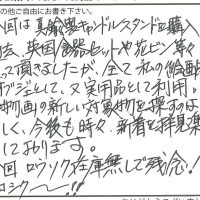 の他ご自由にお書き下さい。
回は真鍮製キャンドルスタンドを購入
去、英国食器セットや花ビン等々
って頂きましたが、全て私の絵画
チーフとして、又実用品として利用。
物画の新しい対象物を探すのは
しく、今後も時々、新着を拝見楽
しております。
回ロウソク在庫無しで残念!
ロシクー!!